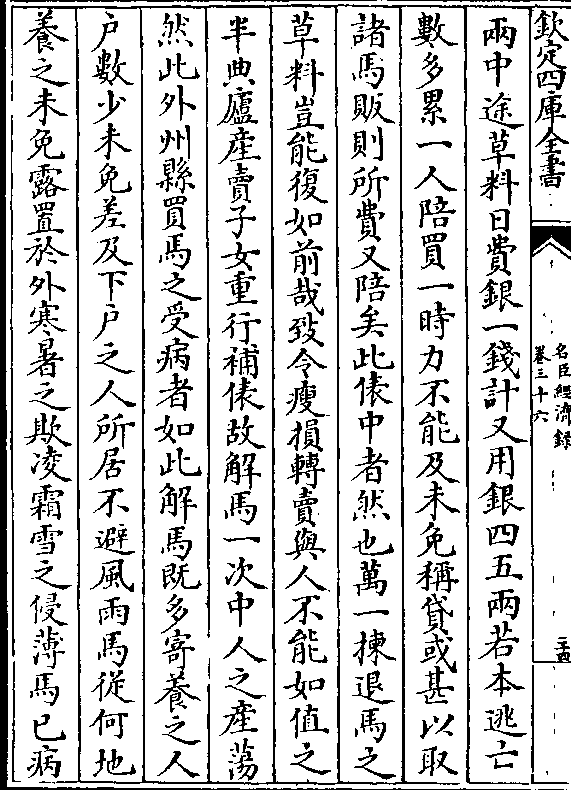 欽定四庫全書
名臣經濟錄
卷三十六
二十四
兩中途草料日費銀一錢計又用銀四五兩若本逃亡
數多累一人陪買一時力不能及未免稱貸或甚以取
諸馬販則所費又陪矣此俵中者然也萬一揀退馬之
草料豈能復如前哉致令瘦損轉賣與人不能如值之
半典廬産賣子女重行補俵故解馬一次中人之産蕩
然此外州縣買馬之受病者如此解馬既多寄養之人
户數少未免差及下户之人所居不避風雨馬從何地
養之未免露置於外寒暑之欺凌霜雪之侵薄馬已病